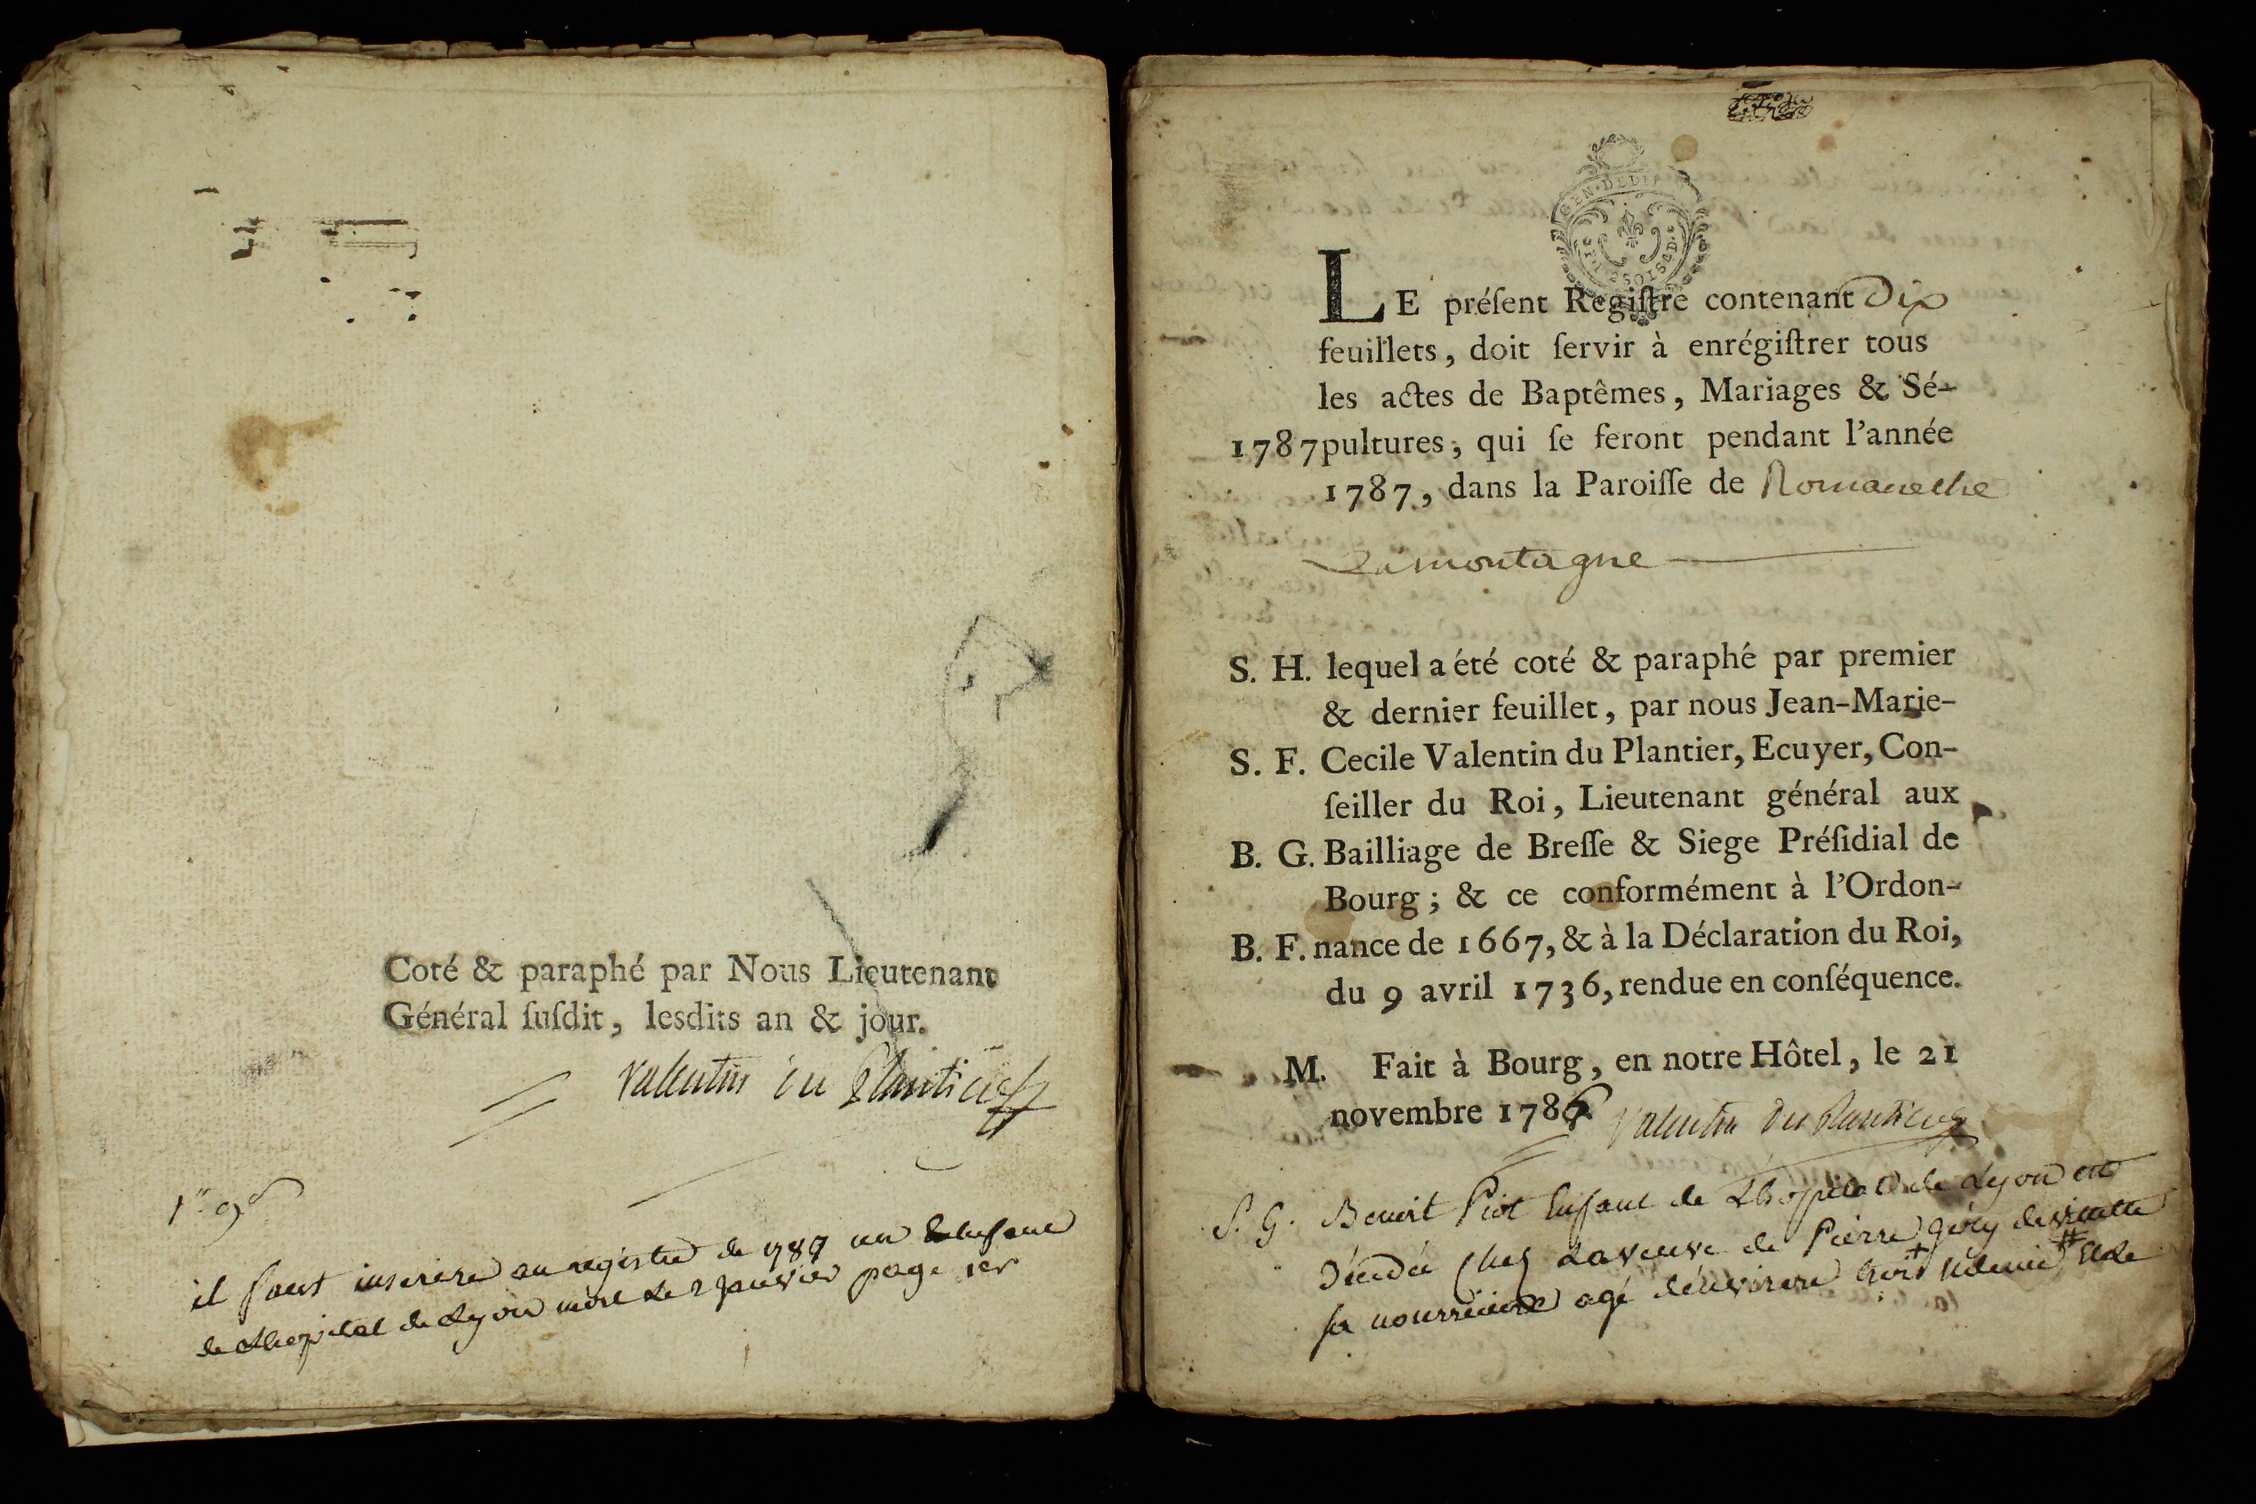 Coté & paraphé par Nous Lieutenant
Général ſuſdit, lesdits an & jour.
Valentin du Plantier
il faut inserere au registre de 1787 un enfant
de Lhopital de Lyon mort Le 2 janvier page 1er
GEN. DEDIJ
LE préſent Regiſtre contenant Dix
feuillets, doit ſervir à enrégiſtrer tous
les actes de Baptêmes, Mariages & Sé-
1787 pultures, qui ſe feront pendant l'année
1787, dans la Paroiſſe de Romaneche
La montagne
S. H. lequel a été coté & paraphé par premier
& dernier feuillet, par nous Jean-Marie-
S. F. Cecile Valentin du Plantier, Ecuyer, Con-
ſeiller du Roi, Lieutenant général aux
B. G. Bailliage de Breſſe & Siege Préſidial de
Bourg ; & ce conformément à l'Ordon-
B. F. nance de 1667, & à la Déclaration du Roi,
du 9 avril 1736, rendue en conſéquence.
M. Fait à Bourg, en notre Hôtel, le 21
novembre 1786 Valentin du Plantier
S. G. Benoit Piot Enfant de Lhopital de Lyon est
Décedé chez La veuve de Pierre
sa nourriciere agé d'environ trois